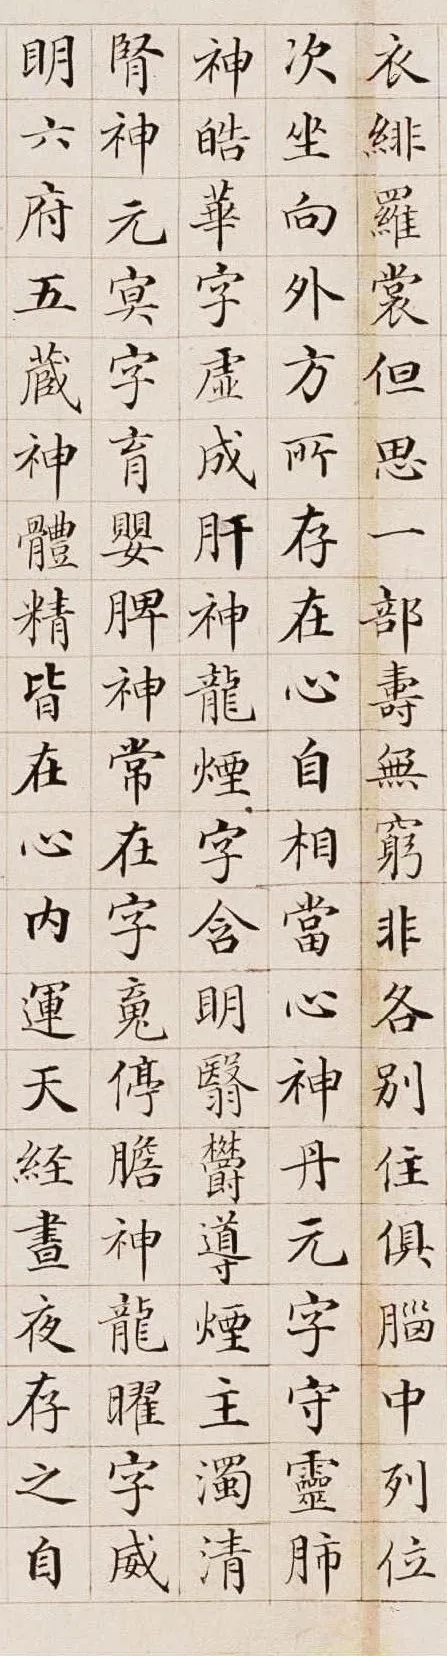 衣緋羅裳但思一部壽無窮非各別住俱腦中列位
次坐向外方所存在心自相當心神丹元字守靈肺
神皓華字虛成肝神龍煙字含明翳鬱導煙主濁清
腎神元冥字育嬰脾神常在字魂停膽神龍曜字威
明六府五藏神體精皆在心內運天経晝夜存之自